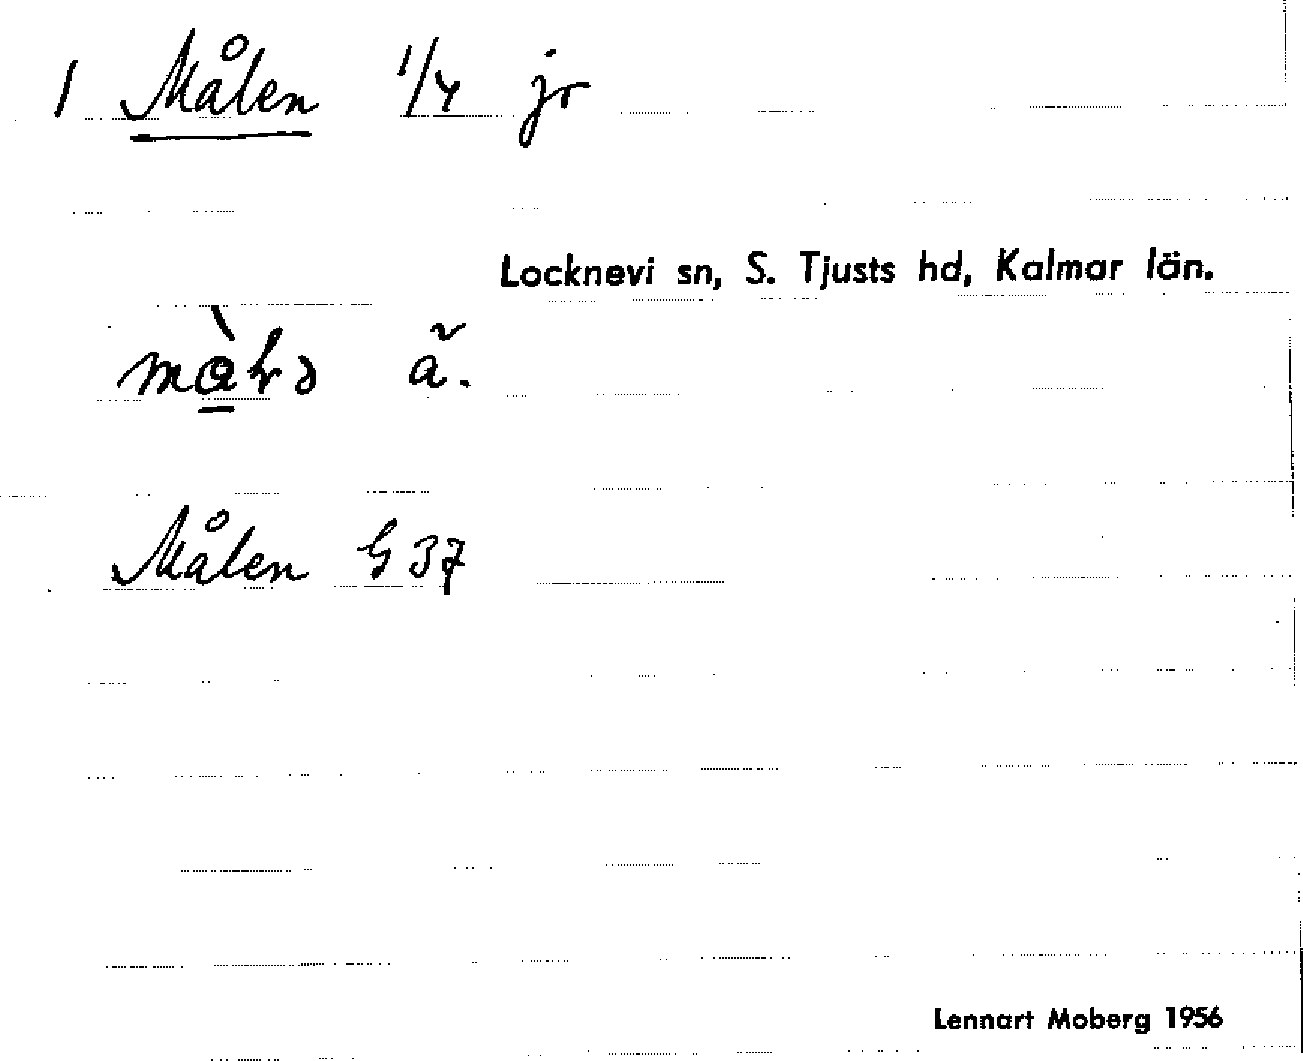 1 Målen 1/4 jr
Locknevi sn, S. Tjusts hd, Kalmar län.
ă.
Målen G 37
Lennart Moberg 1956